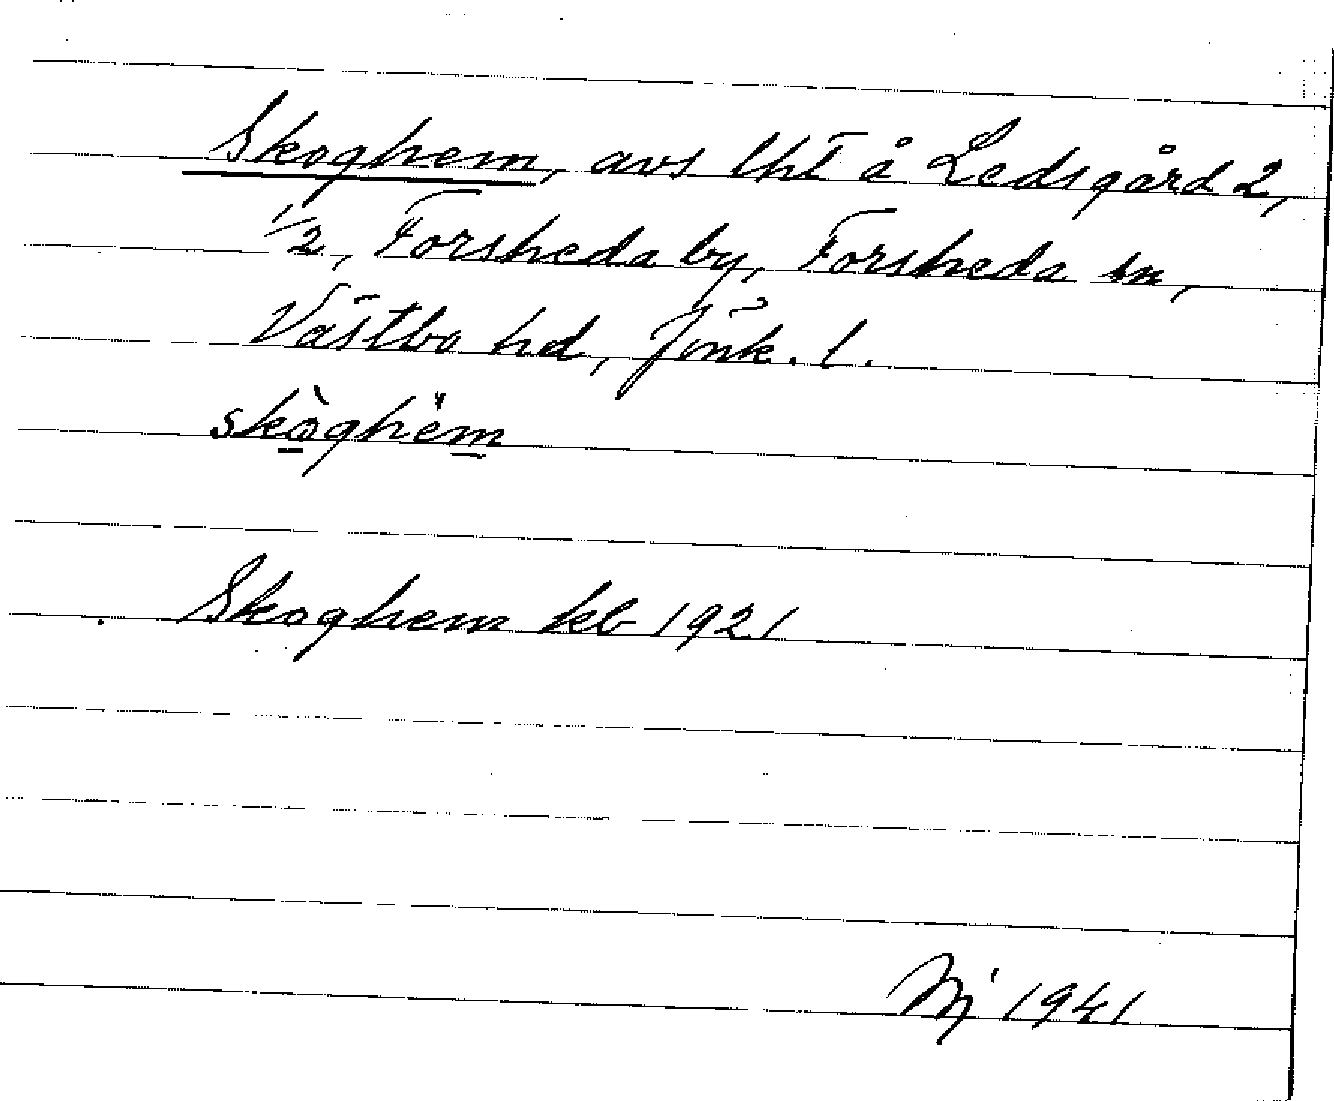 Skoghem, avs lht å Ledsgård 2,
1/2, Forsheda by, Forsheda sn,
Västbo hd, Jönk. l.
skòghem
Skoghem kb 1921
1941